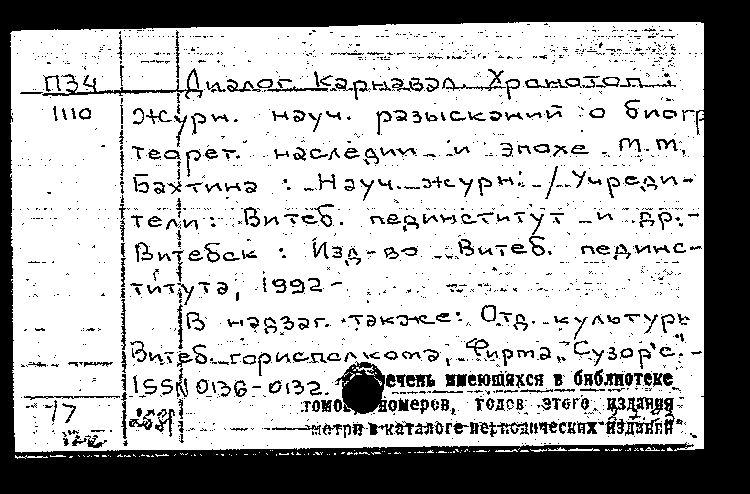 П34 Диалог. Карнавал. Хронотоп :
1110 Журн. науч. разысканий о биогр
теорет. наследии и эпохе М.М.
Бахтина : Науч. журн. / Учреди-
тели: Витеб. пединститут и др.-
Витебск : Изд-во Витеб. пединс-
титута, 1992 -
В надзаг. также: Отд. культуры
Витеб. горисполкома, Фирма "Сузор'е". -
ISSN 0136-0132.
ечень имеющихся в библиотеке
томов номеров, годов этого издания
мотри в каталоге периодических изданий
17